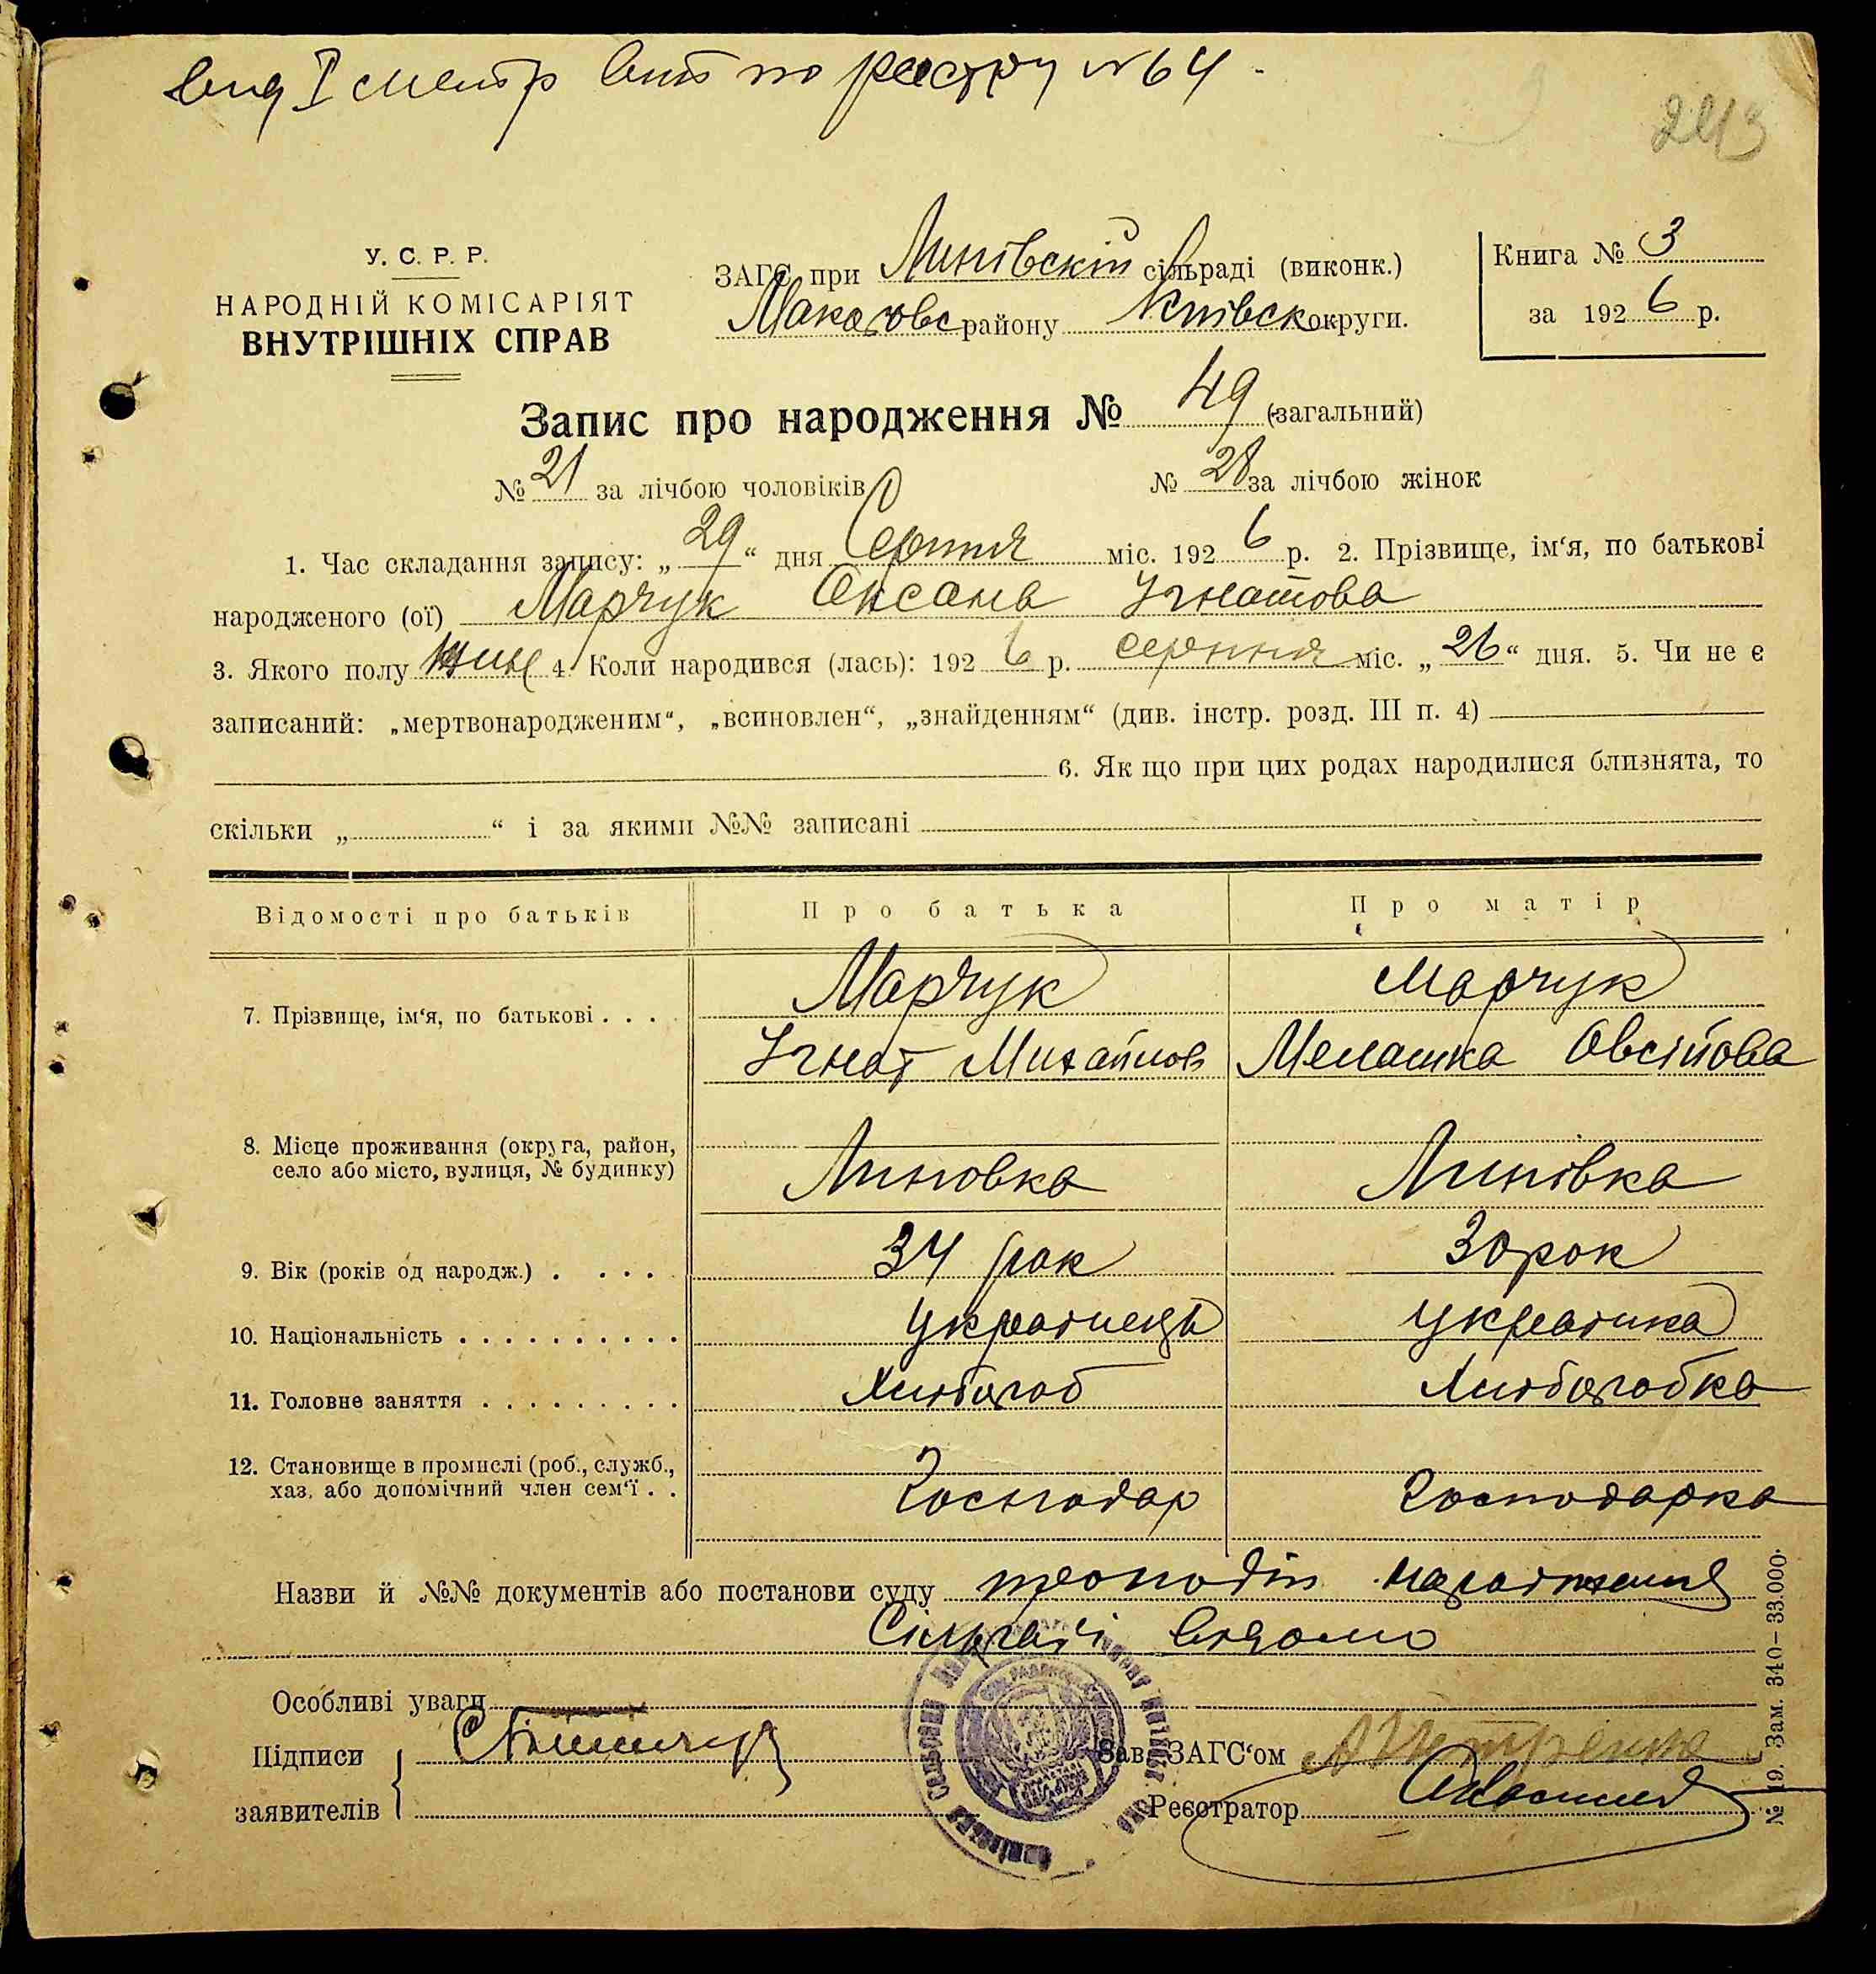 вид І сметр вит по реєстру №64
243
У. С. Р. Р.
НАРОДНІЙ КОМІСАРІЯТ
ВНУТРІШНІХ СПРАВ
ЗАГС при Липівскій сільраді (виконк.)
Макаровс району Київск округи.
Книга № 3
за 1926 р.
Запис про народження № 49 (загальний)
№ 21 за лічбою чоловіків № 28 за лічбою жінок
1. Час складання запису: „29“ дня Серпня міс. 1926 р. 2. Прізвище, ім‘я, по батькові
народженого (ої) Марчук Оксана Угнатова
3. Якого полу жин 4. Коли народився (лась): 1926 р. серпня міс. „26“ дня. 5. Чи не є
записаний: „мертвонародженим“, „всиновлен“, „знайденням“ (див. інстр. розд. III п. 4)
6. Як що при цих родах народилися близнята, то
скільки „ “ і за якими №№ записані
Відомості про батьків Про батька Про матір
7. Прізвище, ім‘я, по батькові . . . .
Марчук Марчук
Угнат Михайлов Мелашка Овсійова
8. Місце проживання (округа, район,
село або місто, вулиця, № будинку)
Липовка Липівка
9. Вік (років од народж.) . . . . 34 рок 30 рок
10. Національність . . . . . . . . . . Украінець Украінка
11. Головне заняття . . . . . . . . . Хлібороб Хліборобка
12. Становище в промислі (роб., служб.,
хаз. або допомічний член сем‘ї . .
Господар Господарка
Назви й №№ документів або постанови суду народження
Сільраді відомо
Особливі уваги
Підписи
заявителів
Зав. ЗАГС‘ом
Реєстратор
№ 19. Зам. 340–33.000.